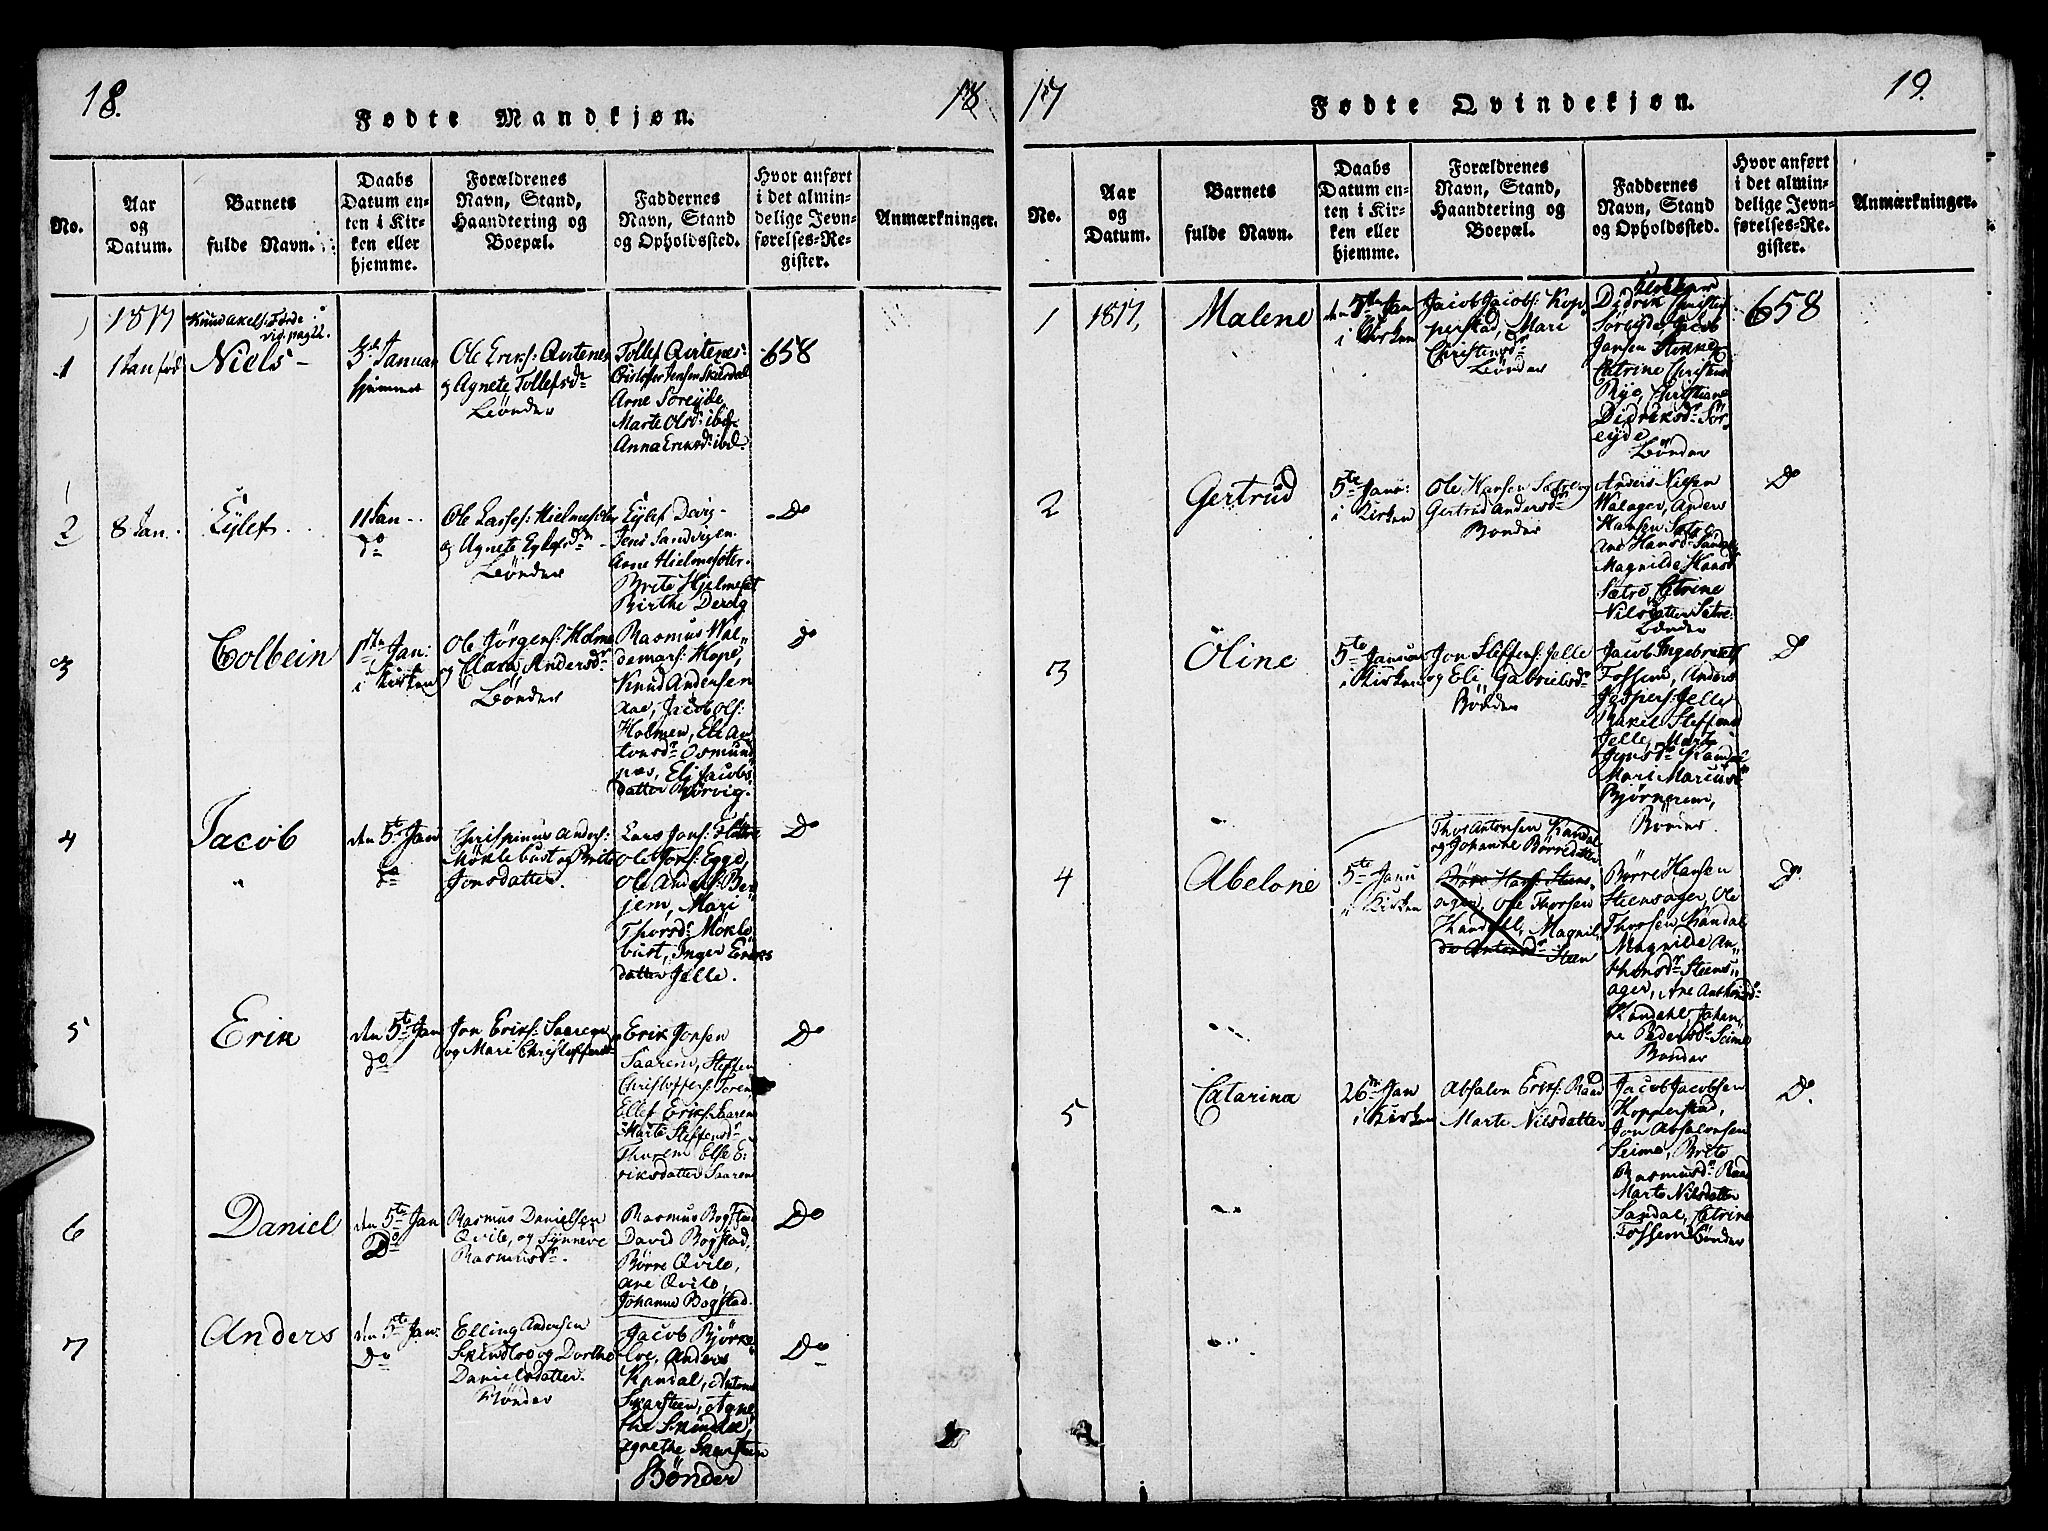 18.
Fødte Mandkjøn.
18
No.
Aar
og
Datum.
Barnets
fulde Navn.
Daabs
Datum en-
ten i Kir-
ken eller
hjemme.
Forældrenes
Navn, Stand,
Haandtering og
Boepæl.
Faddernes
Navn, Stand
og Opholdssted.
Hvor anført
i det almin-
delige Jevn-
førelses-Re-
gister.
Anmærkninger.
1817
Knud Axels: Førde
vid. pag 22.
1
1 Jan fød
Niels
3de Januar
hjemmet
Ole Eriks: Qvitenes
og Agnete Tollefsdr
Bønder
Tollef Qvitenes:
Jensen
Arne Søreyde
Marte Olsd: ibd
Anna Eriksd: ibd:
658
2
8 Jan.
Eylef
11 Jan
do
Ole Lasses:
og Agnete Eylefsdr
Bønder
Eylef
Jens Sandvigen
Arne
Brite
Birthe
Do
3
Colbein
Jan:
i Kirken
Ole Jørgens: Holme
og Clara Andersdr
Bønder
Rasmus Wal-
demars: Hope,
Knud Andersen
Aae, Jacob Ols:
Holmen, Eli An
tonsdr Osmund
næs, Eli Jacobs
datter Rørvig.
Do
4
Jacob
den 5te Jan
do
Chrispinus Anders:
Møklebust og Brite
Jonsdatter.
Lars Jons:
Ole Jons: Egge,
Ole Anders: Ber
jem, Mari
Thorsdr Møkle
bust, Inger Eriks
datter Jelle.
Do
5
Erik
den 5te Jan
do
Jon Eriks: Saarem
og Mari Christoffersdr
Erik Jonsen
Saarem, Steffen
Christoffers:
Ellef Eriks: Saarem
Marte Steffensdr
Thorem Else E-
riksdatter Saarem
Do
6
Daniel
den 5te Jan
Do
Rasmus Danielsen
Qvile, og Synneve
Rasmusdr.
Rasmus Bogstad
David Bogstad,
Børre Qvile,
Ane Qvile,
Johanne Bogstad.
Do
7
Anders
den 5te Jan:
Do
Elling Andersen
Skindloe og Dorthe
Danielsdatter.
Bønder
Jacob Bjørke
loe, Anders
Kandal, Antone
Skarsteen, Agne
the Skindloe,
Agnethe Skarsteen
Bønder
Do
17
Fødte Qvindekjøn.
19.
No.
Aar
og
Datum.
Barnets
fulde Navn.
Daabs
Datum en-
ten i Kir-
ken eller
hjemme.
Forældrenes
Navn, Stand,
Haandtering og
Boepæl.
Faddernes
Navn, Stand
og Opholdssted.
Hvor anført
i det almin-
delige Jevn-
førelses-Re-
gister.
Anmærkninger.
1
1817,
Malene
den 5te Jan
i Kirken
Jacob Jacobs: Kop
perstad, Mari
Christensdr
Bønder
Klokkere
Didrik Christof
Søreyde, Jacob
Jansen
Catrine Christens
Rye, Christiane
Didriksdr Sør
eyde
Bønder
658
2
Gertrud
5te Janu:
i Kirken
Ole Hansen Sætre og
Gertrud Andersdr
Bønder
Anders Nielsen
Walager, Anders
Hansen Sætre
Ane Hansdr Sandal
Magnilde Hansd
Sætre, Catrine
Nilsdatter Sætre
Bønder
Do
3
Oline
5te Januar
i Kirken
Jon Steffens: Jelle
og Eli Gabrielsdr
Bønder
Jacob Ingebrigts
Fossem, Anders
Jespers: Jelle
Steffens
Jelle, Marte
Jensdr
Mari Marcusdr
Bjørnerem,
Bønder.
Do
4
Abelone
5te Janu
i Kirken
Thor Antonsen Kandal
og Johanne Børredatter
Børe Hans: Steens-
ager, Ole Thorsen
Kandahl, Magnil
de Antonsdr Steen
Børre Hansen
Steensager, Ole
Thorsen Kandal
Magnilde An-
thonsdr Steens-
ager, Ane Anthonsdr
Kandahl Johan-
ne Pedersdr Seime
Bønder
Do.
5
Catarina
26de Jan
i Kirken
Absalon Eriks: Raad
Marte Nilsdatter
Jacob Jacobsen
Kopperstad,
Jon Absalonsen
Seime, Brite
Rasmusdr Raad
Marte Nilsdatter
Sandal, Catrine
Fossem Bønder
Do.